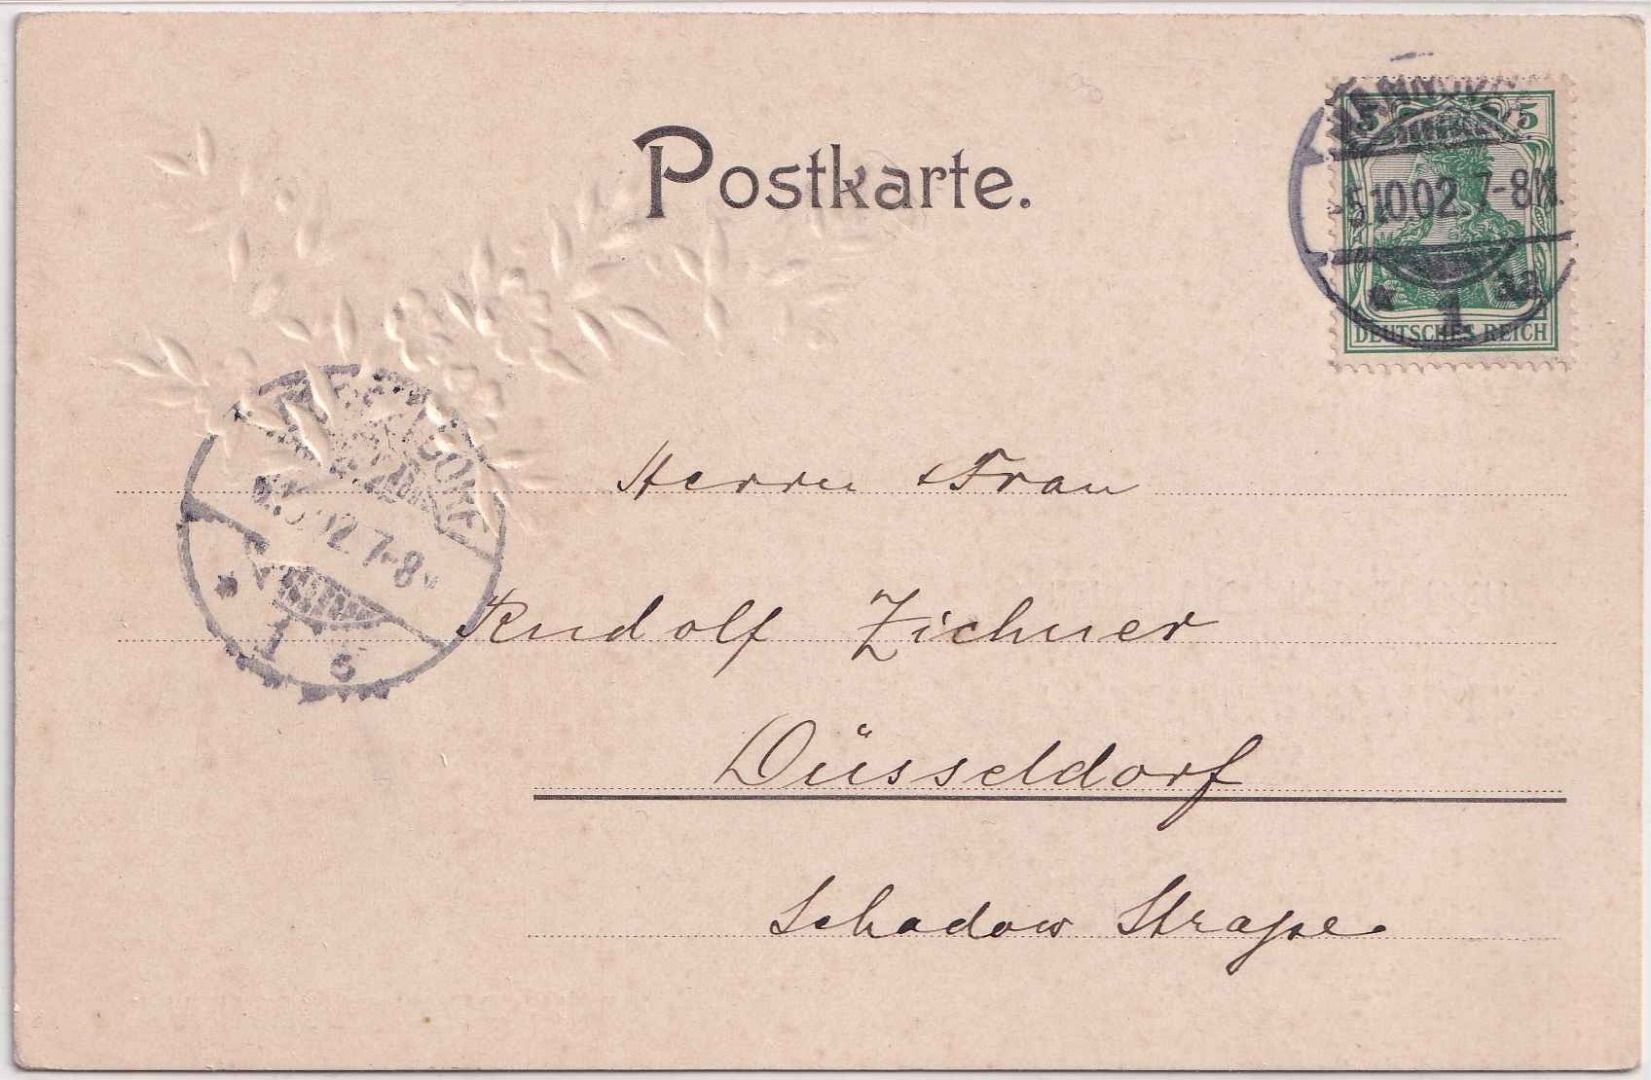 Postkarte.
5 5
5.10.02. 7-8N.
1
DEUTSCHES REICH
Herrn & Frau
02. 7-8
1 c
Rudolf Zichner
Düsseldorf
Schadow Straße.